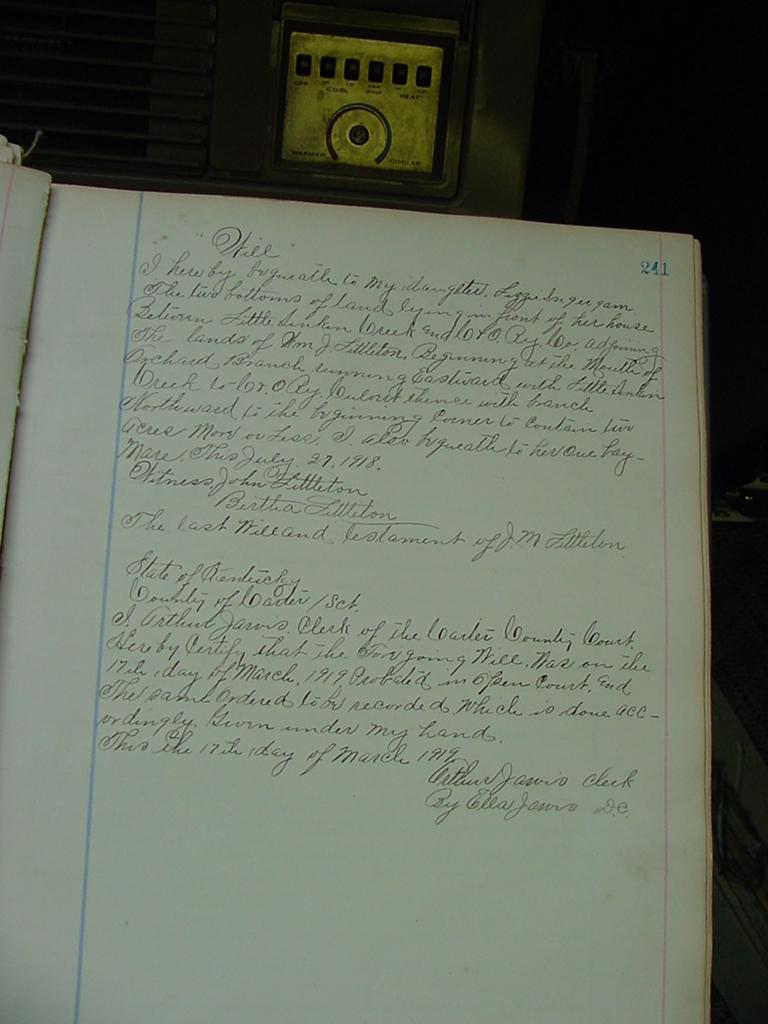 OFF
LO
COOL
FAN ONLY
HEAT
WARMER
COOLER
241
"Will"
I hereby bequeath to my daughter, Lizzie Ingergam
The two bottoms of land lying in front of her house
Between Little Sinkin Creek and C & O. Ry. Co. adjoining
The lands of Wm J. Littleton, Beginning at the Mouth of
Orchard Branch running Eastward with Little Sinkin
Creek to C. & O Ry. Culvert thence with branch
Northward to the beginning Corner to Contain two
Acres More or Less. I also bequeath to her One bay-
Mare. This July 27, 1918.
Witness, John Littleton
Bertha Littleton
The Last Will and testament of J. M Littleton.
State of Kentucky
County of Carter / Sct.
I, Arthur Jarvis, Clerk of the Carter County Court,
Hereby Certify that the Forgoing Will, Was on the
17th, day of March, 1919 Probated in Open Court, End
The same Ordered to be recorded Which is done acc-
ordingly. Given under My hand.
This the 17th, day of March 1919.
Arthur Jarvis Clerk
By Ella Jarvis D.C.